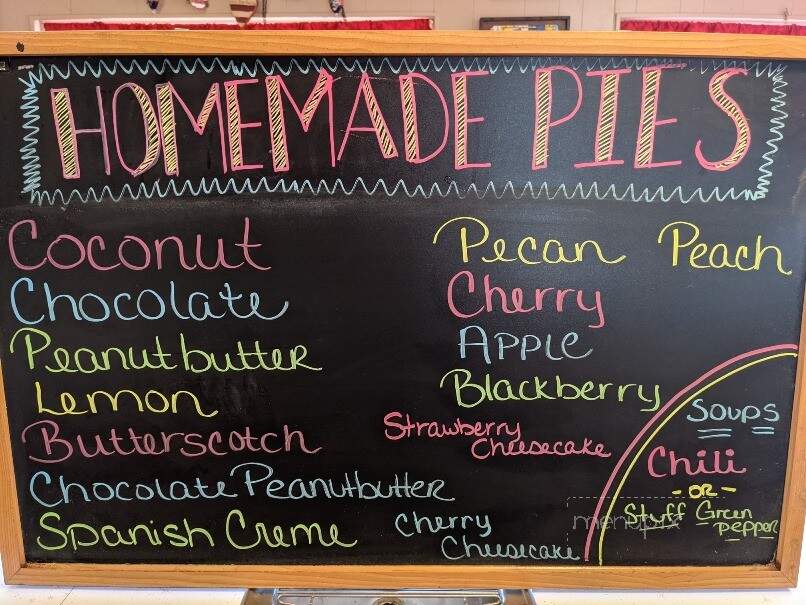 HOMEMADE PIES
Coconut
Chocolate
Peanutbutter
Lemon
Butterscotch
Chocolate Peanutbutter
Spanish Creme
Pecan Peach
Cherry
Apple
Blackberry
Strawberry
Cheesecake
Cherry
Cheesecake
Soups
Chili
- OR -
Stuff Green
Pepper
menupix